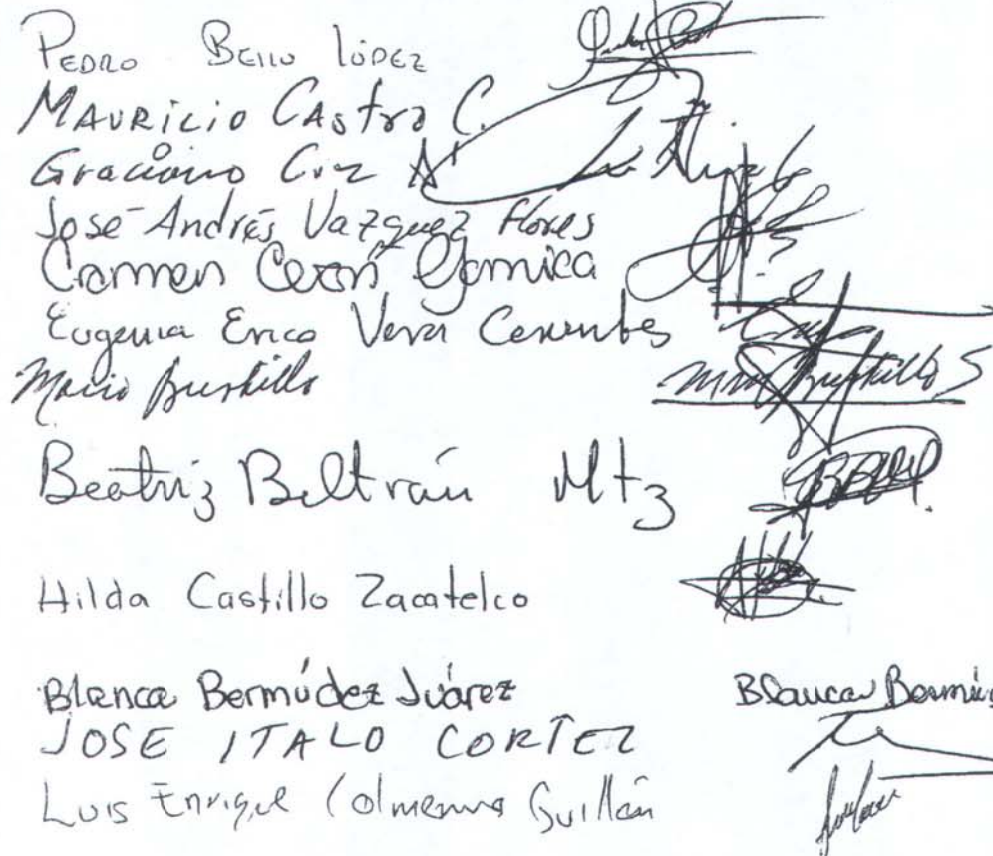 PEDRO BELLO LÓPEZ
MAURICIO CAStro C.
Graciano Cruz A.
José Andrés Vazquez flores
Carmen Cerón Garnica
Eugenia Erica Vera Cervantes
Mario Bustillo Bustillo S
Beatriz Beltrán Mtz BBM.
Hilda Castillo Zacatelco
Blanca Bermúdez Juárez Blanca Bermúdez
JOSE ITALO CORTEZ
Luis Enrique Colmenares Guillén